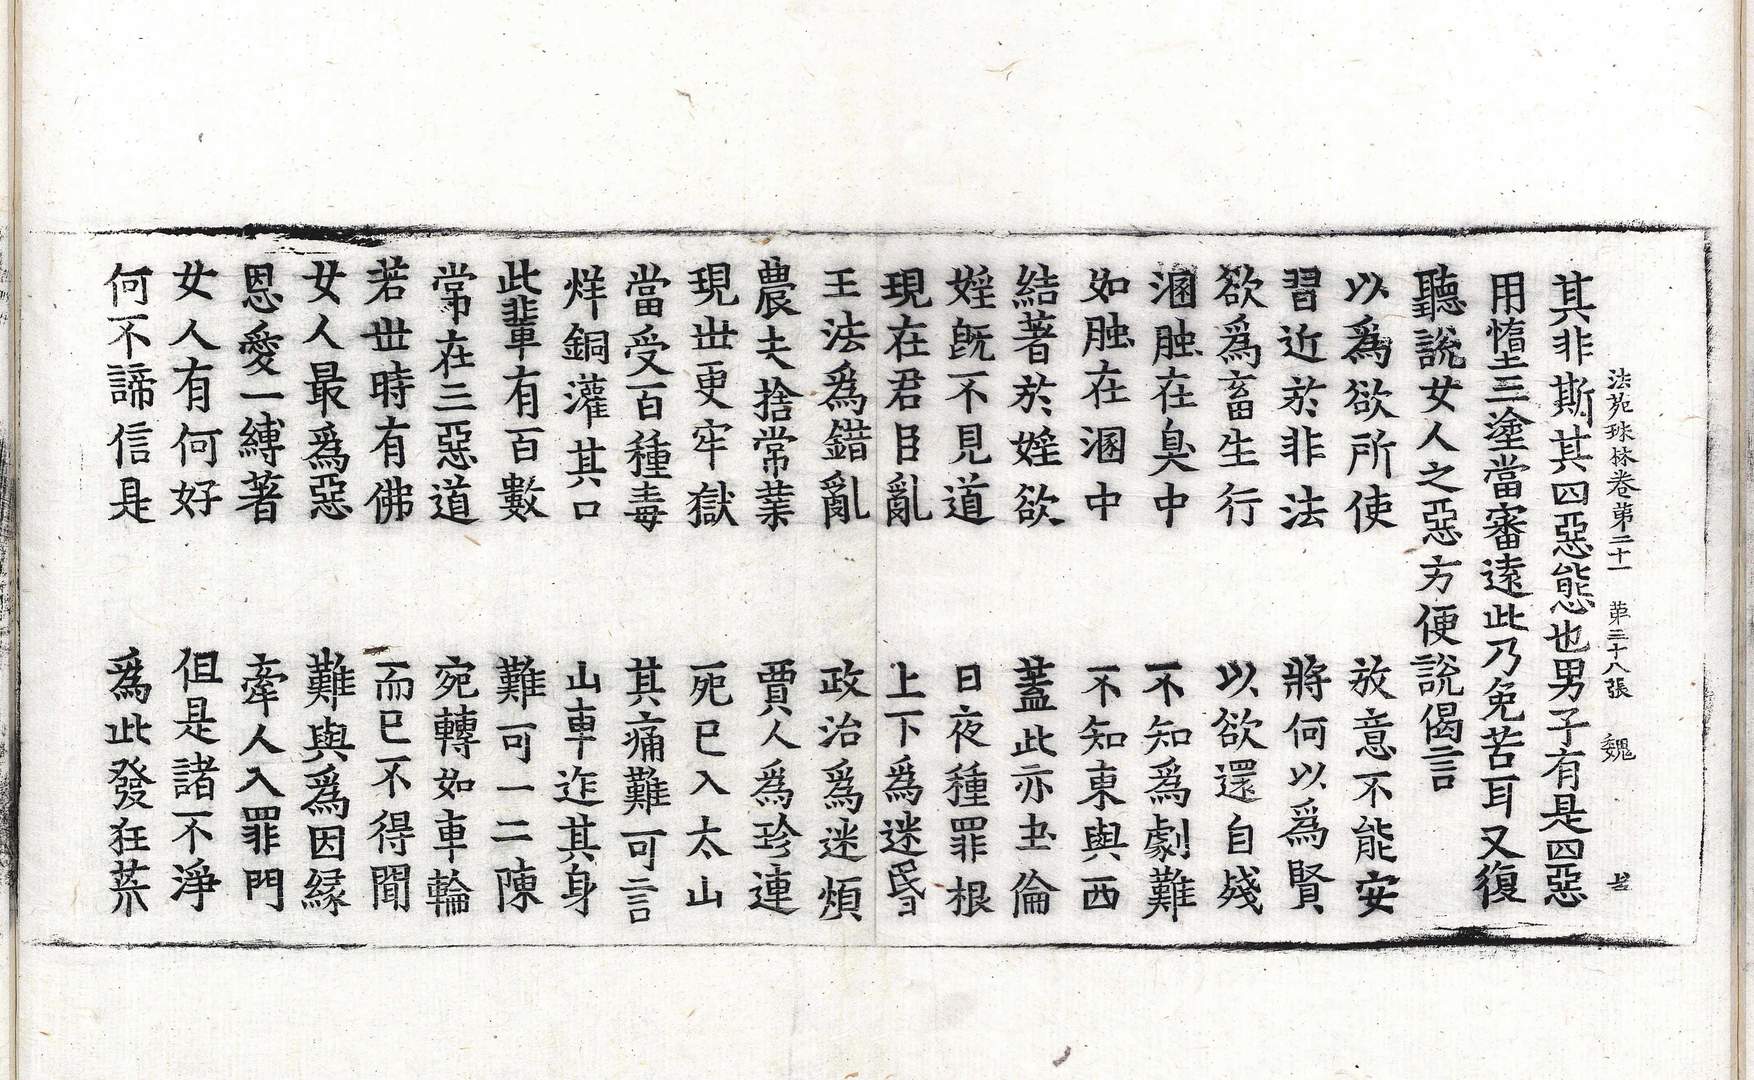 法苑珠林卷第二十一　第三十八張　魏
其非斯其四惡態也男子有是四惡
用惰三塗當審遠此乃免苦耳又復
聽說女人之惡方便說偈言
以爲欲所使　放意不能安
習近於非法　將何以爲賢
欲爲畜生行　以欲還自殘
溷䖝在臭中　不知爲劇難
如䖝在溷中　不知東與西
結著於婬欲　蓋此亦䖝倫
婬旣不見道　日夜種罪根
現在君臣亂　上下爲迷㬰
王法爲錯亂　政治爲迷煩
農夫捨常業　賈人爲珍連
現世更牢獄　死已入太山
當受百種毒　其痛難可言
烊銅灌其口　山車迮其身
此輩有百數　難可一二陳
常在三惡道　宛轉如車輪
若世時有佛　而已不得聞
女人最爲惡　難與爲因緣
恩愛一縛著　牽人入罪門
女人有何好　但是諸不淨
何不諦信是　爲此發狂荒